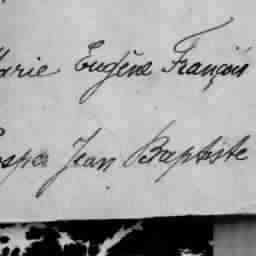 Marie Eugène François
Jean Baptiste